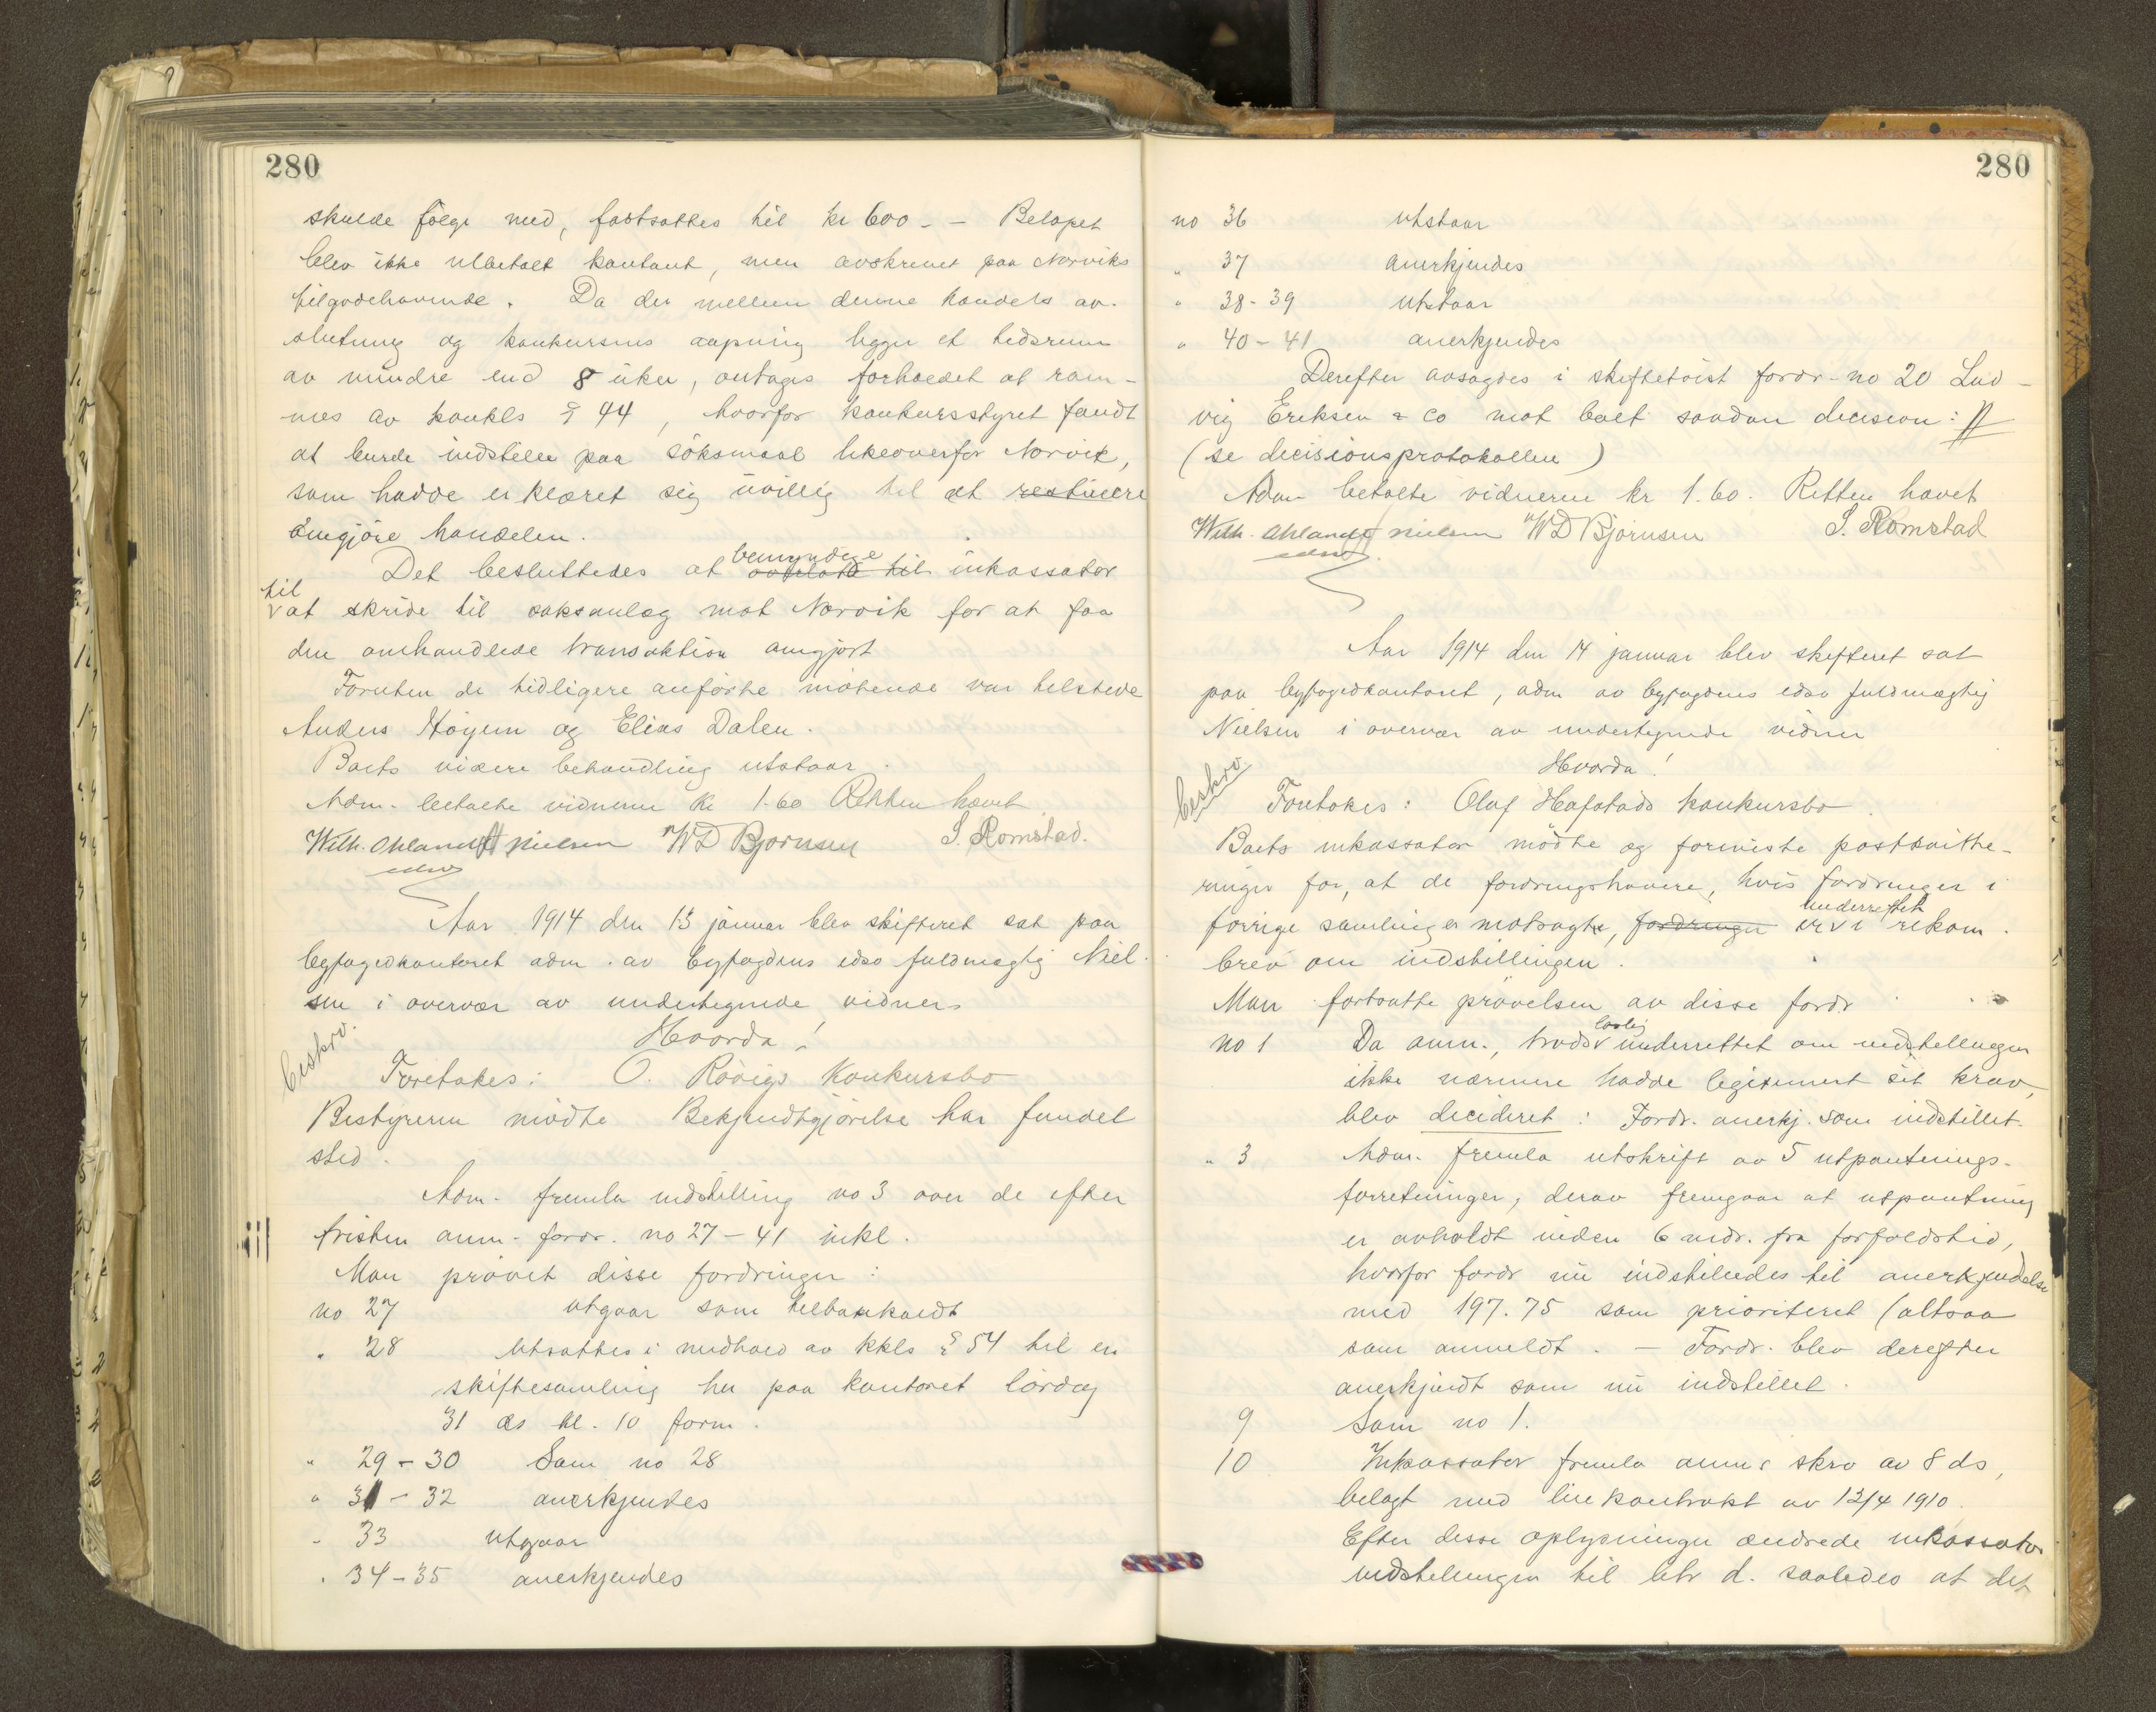 280
skulde følge med, fastsattes til kr 600 - – Beløpet
blev ikke utbetalt kontant, men avskrevet paa Norviks
tilgodehavende. Da der mellem denne handels av-
slutning og konkursens aapning ligger et tidsrum
av mindre end 8 uker, antages forholdet at ram-
mes av konkls § 44, hvorfor konkursstyret fandt
at burde indstille paa søksmaal likeoverfor Norvik,
som hadde erklæret sig uvillig til at restituere
omgjøre handelen.
Det besluttedes at overlate til bemyndige inkassator
til at skride til saksanlæg mot Norvik for at faa
den omhandlede transaktion omgjort
Foruten de tidligere anførte møtende var tilstede
Anders Høyem og Elias Dalen.
Boets videre behandling utstaar.
Adm. betalte vidnerne kr 1.60 Retten hævet
Wilh. Ohlandt Nielsen W D Bjørnsen S. Romstad.
edsv
Aar 1914 den 13 januar blev skifteret sat paa
byfogedkontoret adm. av byfogdens edsv fuldmægtig Niel-
sen i overvær av undertegnede vidner
Hvorda!
beskrv.
Foretokes: O. Røvigs Konkursbo
Bestyreren mødte Bekjendtgjørelse har fundet
sted.
Adm. fremla indstilling no 3 over de efter
fristen anm. fordr. no 27 – 41 inkl.
Man prøvet disse fordringer:
no 27 utgaar som tilbakekaldt
" 28 utsattes i medhold av kkls § 54 til en
skiftesamling her paa kontoret lørdag
31 ds kl. 10 form.
" 29 – 30 Som no 28
" 31 – 32 anerkjendes
" 33 utgaar
" 34 – 35 anerkjendes
280
no 36 utstaar
" 37 anerkjendes
" 38 - 39 utstaar
" 40 – 41 anerkjendes
Derefter avsagdes i skiftetvist fordr. no 20 Lud-
vig Eriksen & Co mot boet saadan decision:
(se decisionsprotokollen)
Adm. betalte vidnerne kr 1.60. Retten hævet
Wilh. Ohlandt Nielsen W D Bjørnsen S. Romstad
edsv
Aar 1914 den 14 januar blev skifteret sat
paa byfogedkontoret, adm av byfogdens edsv fuldmægtig
Nielsen i overvær av undertegnede vidner
Hvorda!
beskrv
Foretokes: Olaf Hafstads konkursbo.
Boets inkassator mødte og forviste postkvitte-
ringer for, at de fordringshavere, hvis fordringer i
forrige samling er motsagte, fordringer er underrettet i rekom.
brev om indstillingen.
Man fortsatte prøvelsen av disse fordr
no 1 Da anm., trods lovlig underrettet om indstillingen
ikke nærmere hadde legitimert sit krav,
blev decideret: Fordr. anerkj. som indstillet.
" 3 Adm. fremla utskrift av 5 utpantnings-
forretninger, derav fremgaar at utpantning
er avholdt inden 6 mdr. fra forfaldstid,
hvorfor fordr nu indstilledes til anerkjendelse
med 197.75 som prioriteret (altsaa
som anmeldt. – Fordr. blev derefter
anerkjendt som nu indstillet.
9 Som no 1.
10 Inkassator fremla anm.s skrv av 8 ds,
belagt med leiekontrakt av 12/4 1910.
Efter disse oplysninger ændrede inkassator
indstillingen til litr d. saaledes at det